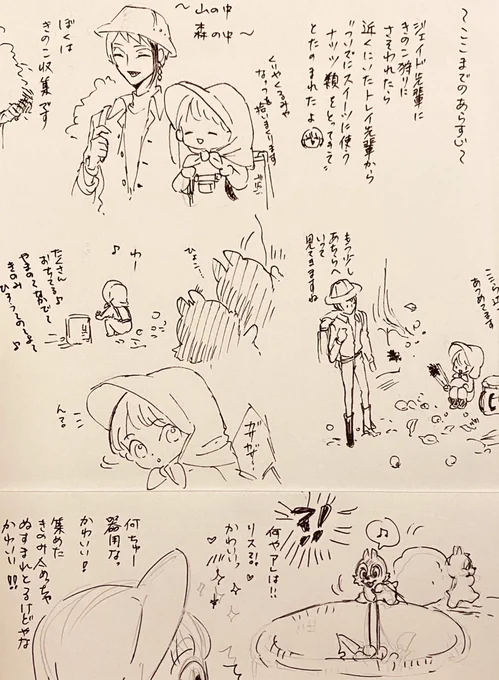 〜ここまでのあらすじ〜
ジェイド先輩に
きのこ狩りに
さそわれたら
近くにいたトレイ先輩から
"ついでにスイーツに使う
ナッツ類をとってきて"
とたのまれたよ
〜山の中
森の中〜
くりやくるみや
なっつを拾いまくります
ぼくは
きのこ収集です
あつめてます
もう少し
あちらへ
いって
見てきますね
ひょこ…
わー
♪
たくさん
おちてる♪
やまのなかで〜
きのみ
ひろってのしょく
♪
ガサガサ
ん？
何やアレは!!
リスる。
かわいいっ
何ちゅー
器用な。
かわいい！
集めた
きのみめっちゃ
ぬすまれとるけどやな
かわいい!!